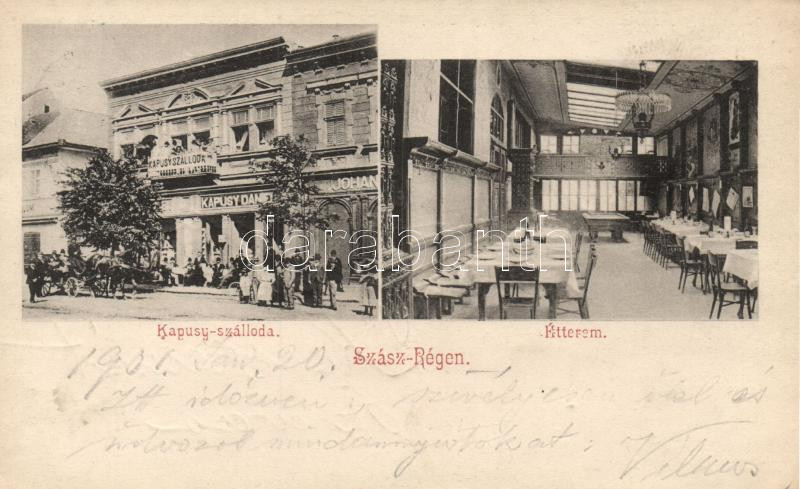 KAPUSY SZÁLLODA
KAPUSY DAN
JOHAN
darabanth
Kapusy-szálloda.
Étterem.
Szász-Régen.
1901. Jan. 20.
Itt időzven szívélyesen és
üdvözöl mindannyiotokat:
Vilmos